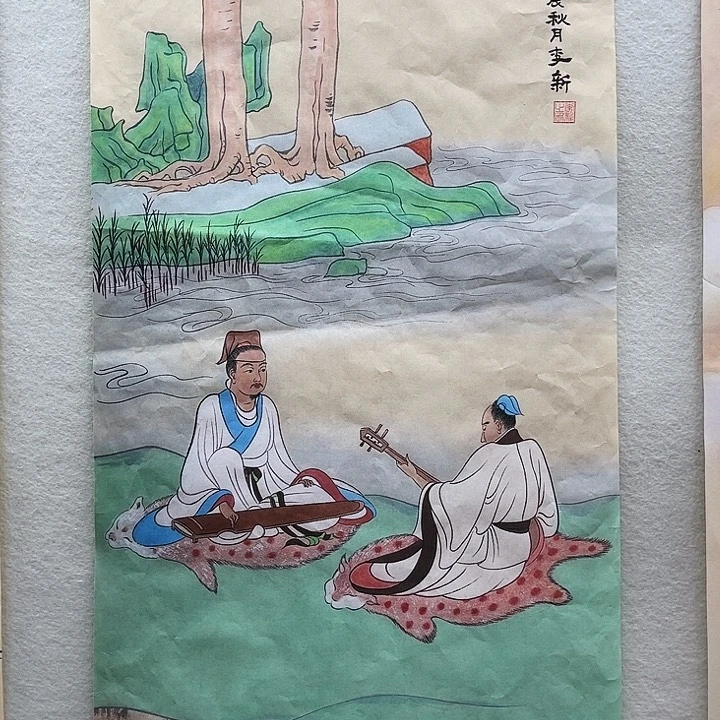 辰秋月李新